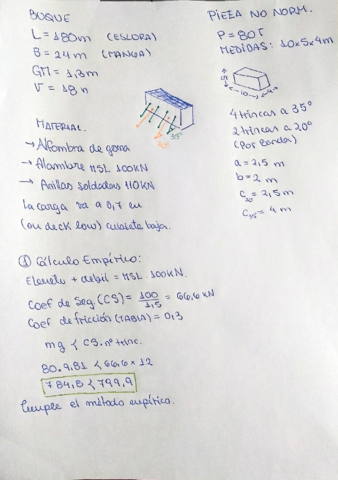 BUQUE
L = 180m (ESLORA)
B = 24m (MANGA)
GM = 1,3m
V = 18n
PIEZA NO NORM.
P = 80T
MEDIDAS: 10x5x4m
5
10
4
4 trincas a 35°
2 trincas a 20°
(Por banda)
a = 2,5 m
b = 2 m
c20 = 2,5 m
c35 = 4 m
35°
MATERIAL.
→ Alfombra de goma
→ Alambre MSL 100KN
→ Anillas soldadas 110KN
La carga va a 0,7 L
(on deck low) cubierta baja.
① Cálculo Empírico:
Elemento + débil = MSL 100KN.
Coef de Seg.(CS) = 100/1,5 = 66,6 KN
Coef de fricción (TABLA) = 0,3
mg < CS. nº trinc.
80 . 9,81 < 66,6 x 12
784,8 < 799,9
Cumple el método empírico.